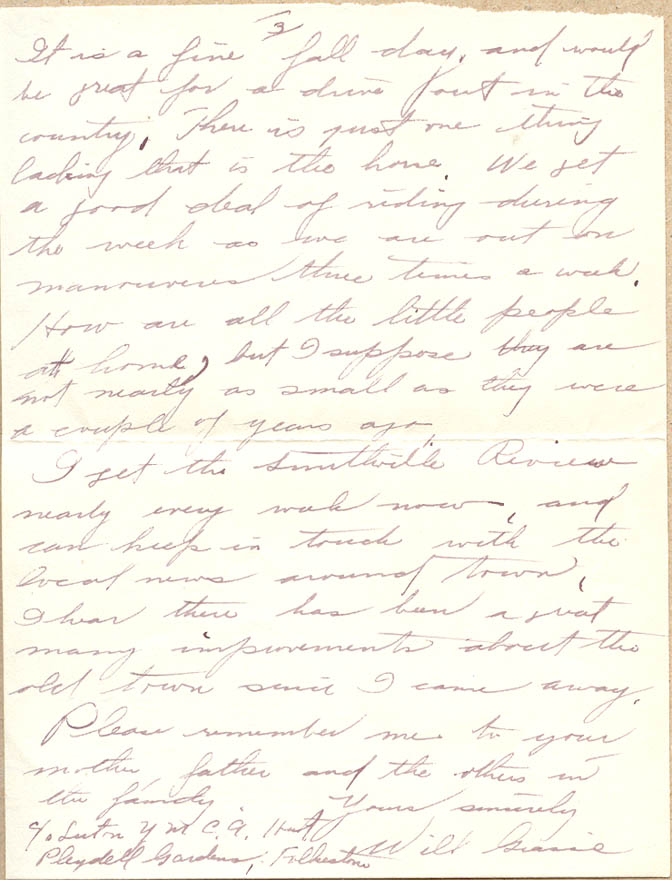 3
It is a fine fall day, and would
be great for a drive out in the
country. There is just one thing
lacking that is the horse. We get
a good deal of riding during
the week as we are out on
manouveres three times a week.
How are all the little people
at home, but I suppose they are
not nearly as small as they were
a couple of years ago.
I get the Smithville Review
nearly every week now, and
can keep in touch with the
local news around town,
I hear there has been a great
many improvements about the
old town since I came away.
Please remember me to your
mother, father and the others in
the family. Yours sincerely
c/o Luton Y.M.C.A. Hut Will
Pleydell Gardens, Folkestone